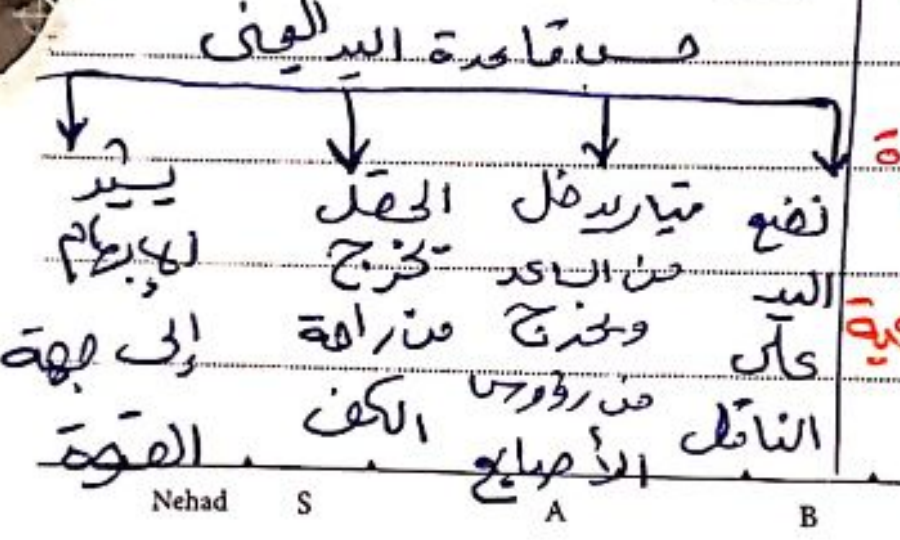 حسب قاعدة اليد اليمنى
نضع
اليد
على
الناقل
تيار يدخل
من الساعد
ويخرج
من رؤوس
الأصابع
الحقل
يخرج
من راحة
الكف
يشير
الإبهام
إلى جهة
القوة
ة
ية
Nehad S A B